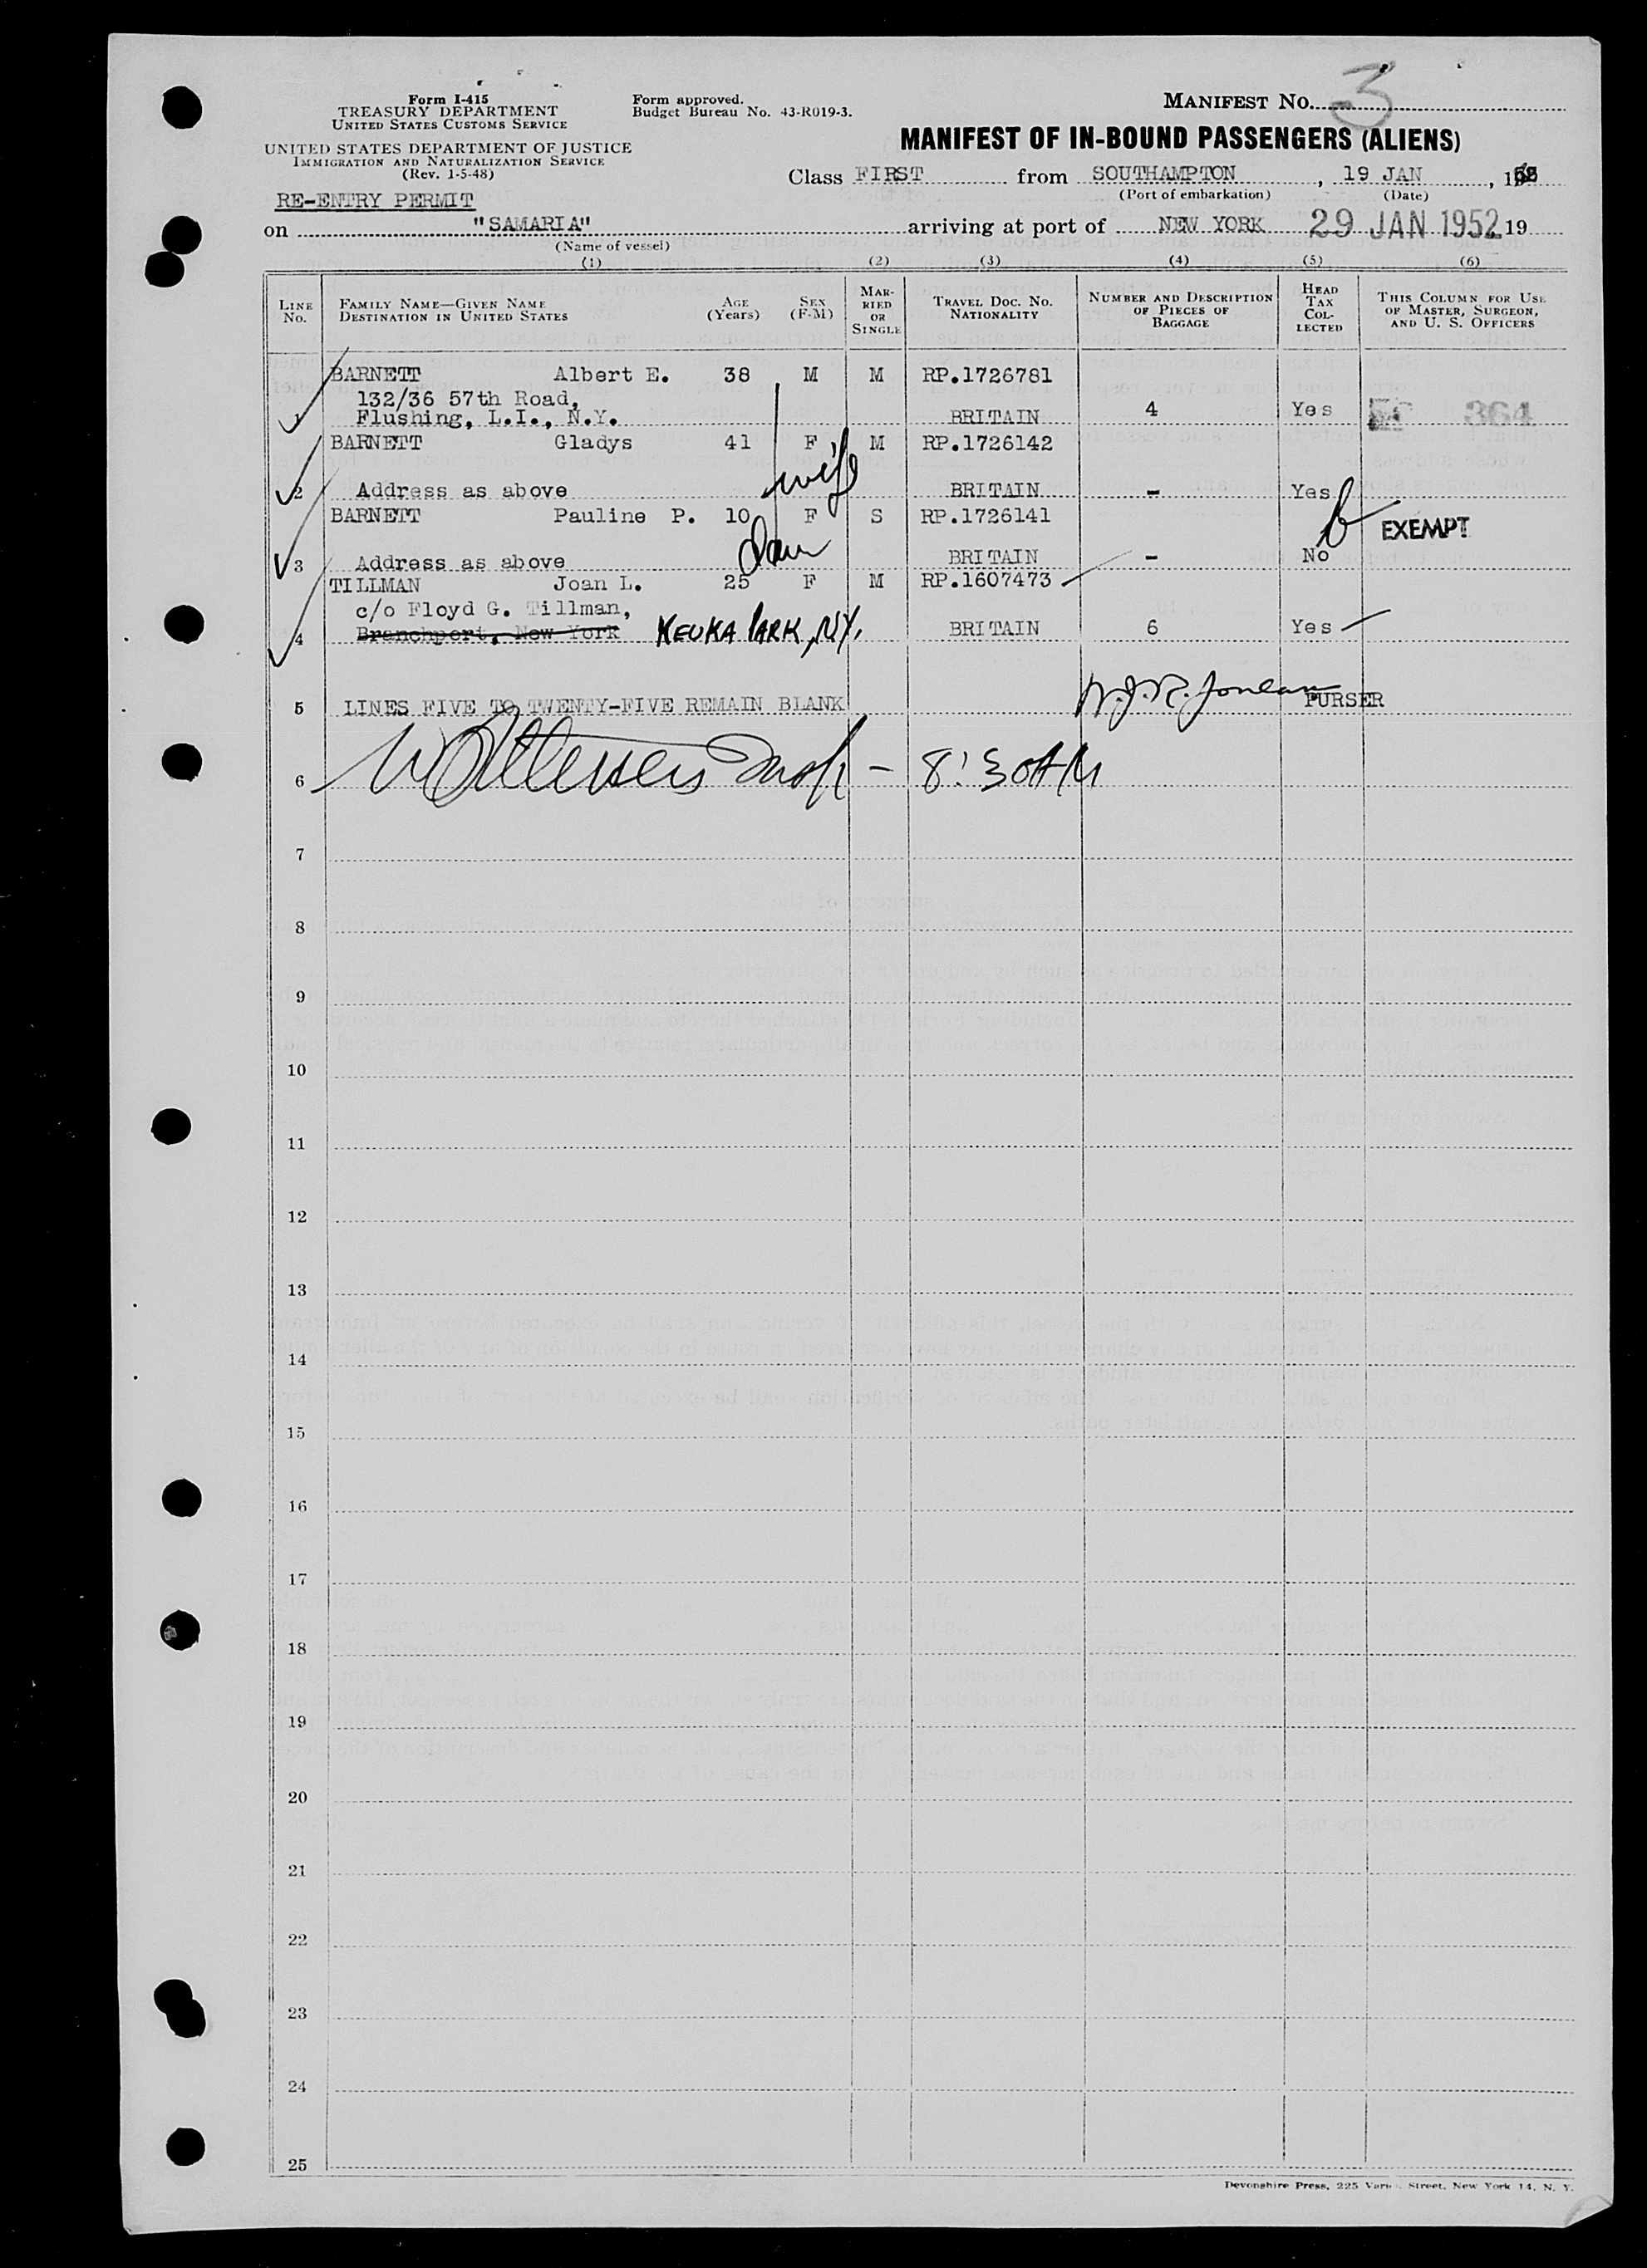 Form I-415
TREASURY DEPARTMENT
UNITED STATES CUSTOMS SERVICE
UNITED STATES DEPARTMENT OF JUSTICE
IMMIGRATION AND NATURALIZATION SERVICE
(Rev. 1-5-48)
Form approved.
Budget Bureau No. 43-R019-3.
MANIFEST NO. 3
MANIFEST OF IN-BOUND PASSENGERS (ALIENS)
Class FIRST from SOUTHAMPTON, 19 JAN, 19
(Port of embarkation) (Date)
RE-ENTRY PERMIT
on "SAMARIA" arriving at port of NEW YORK 29 JAN 1952 19
(Name of vessel)
(1) (2) (3) (4) (5) (6)
LINE No. FAMILY NAME—GIVEN NAME DESTINATION IN UNITED STATES AGE (Years) SEX (F-M) MARRIED OR SINGLE TRAVEL DOC. NO. NATIONALITY NUMBER AND DESCRIPTION OF PIECES OF BAGGAGE HEAD TAX COLLECTED THIS COLUMN FOR USE OF MASTER, SURGEON, AND U. S. OFFICERS
BARNETT Albert E. 38 M M RP.1726781
132/36 57th Road,
1 Flushing, L.I., N.Y. BRITAIN 4 Yes 364
BARNETT Gladys 41 F M RP.1726142
wife
2 Address as above BRITAIN - Yes
BARNETT Pauline P. 10 F S RP.1726141
EXEMPT
dau
3 Address as above BRITAIN - No
TILLMAN Joan L. 25 F M RP.1607473
c/o Floyd G. Tillman,
4 Branchport, New York KEUKA PARK, N.Y. BRITAIN 6 Yes
5 LINES FIVE TO TWENTY-FIVE REMAIN BLANK PURSER
6 - 8:30 AM
7
8
9
10
11
12
13
14
15
16
17
18
19
20
21
22
23
24
25
Devonshire Press, 225 Varick Street, New York 14, N. Y.